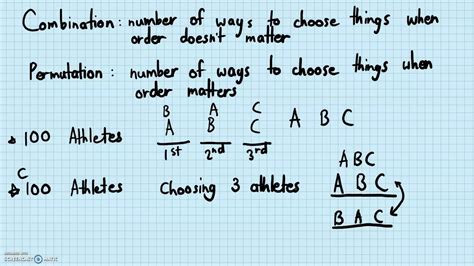 Combination: number of ways to choose things when
order doesn't matter
Permutation: number of ways to choose things when
order matters
B A C
100 Athletes A B C A B C
1st 2nd 3rd
A B C
C
100 Athletes Choosing 3 athletes A B C
B A C
SCREENCAST-O-MATIC